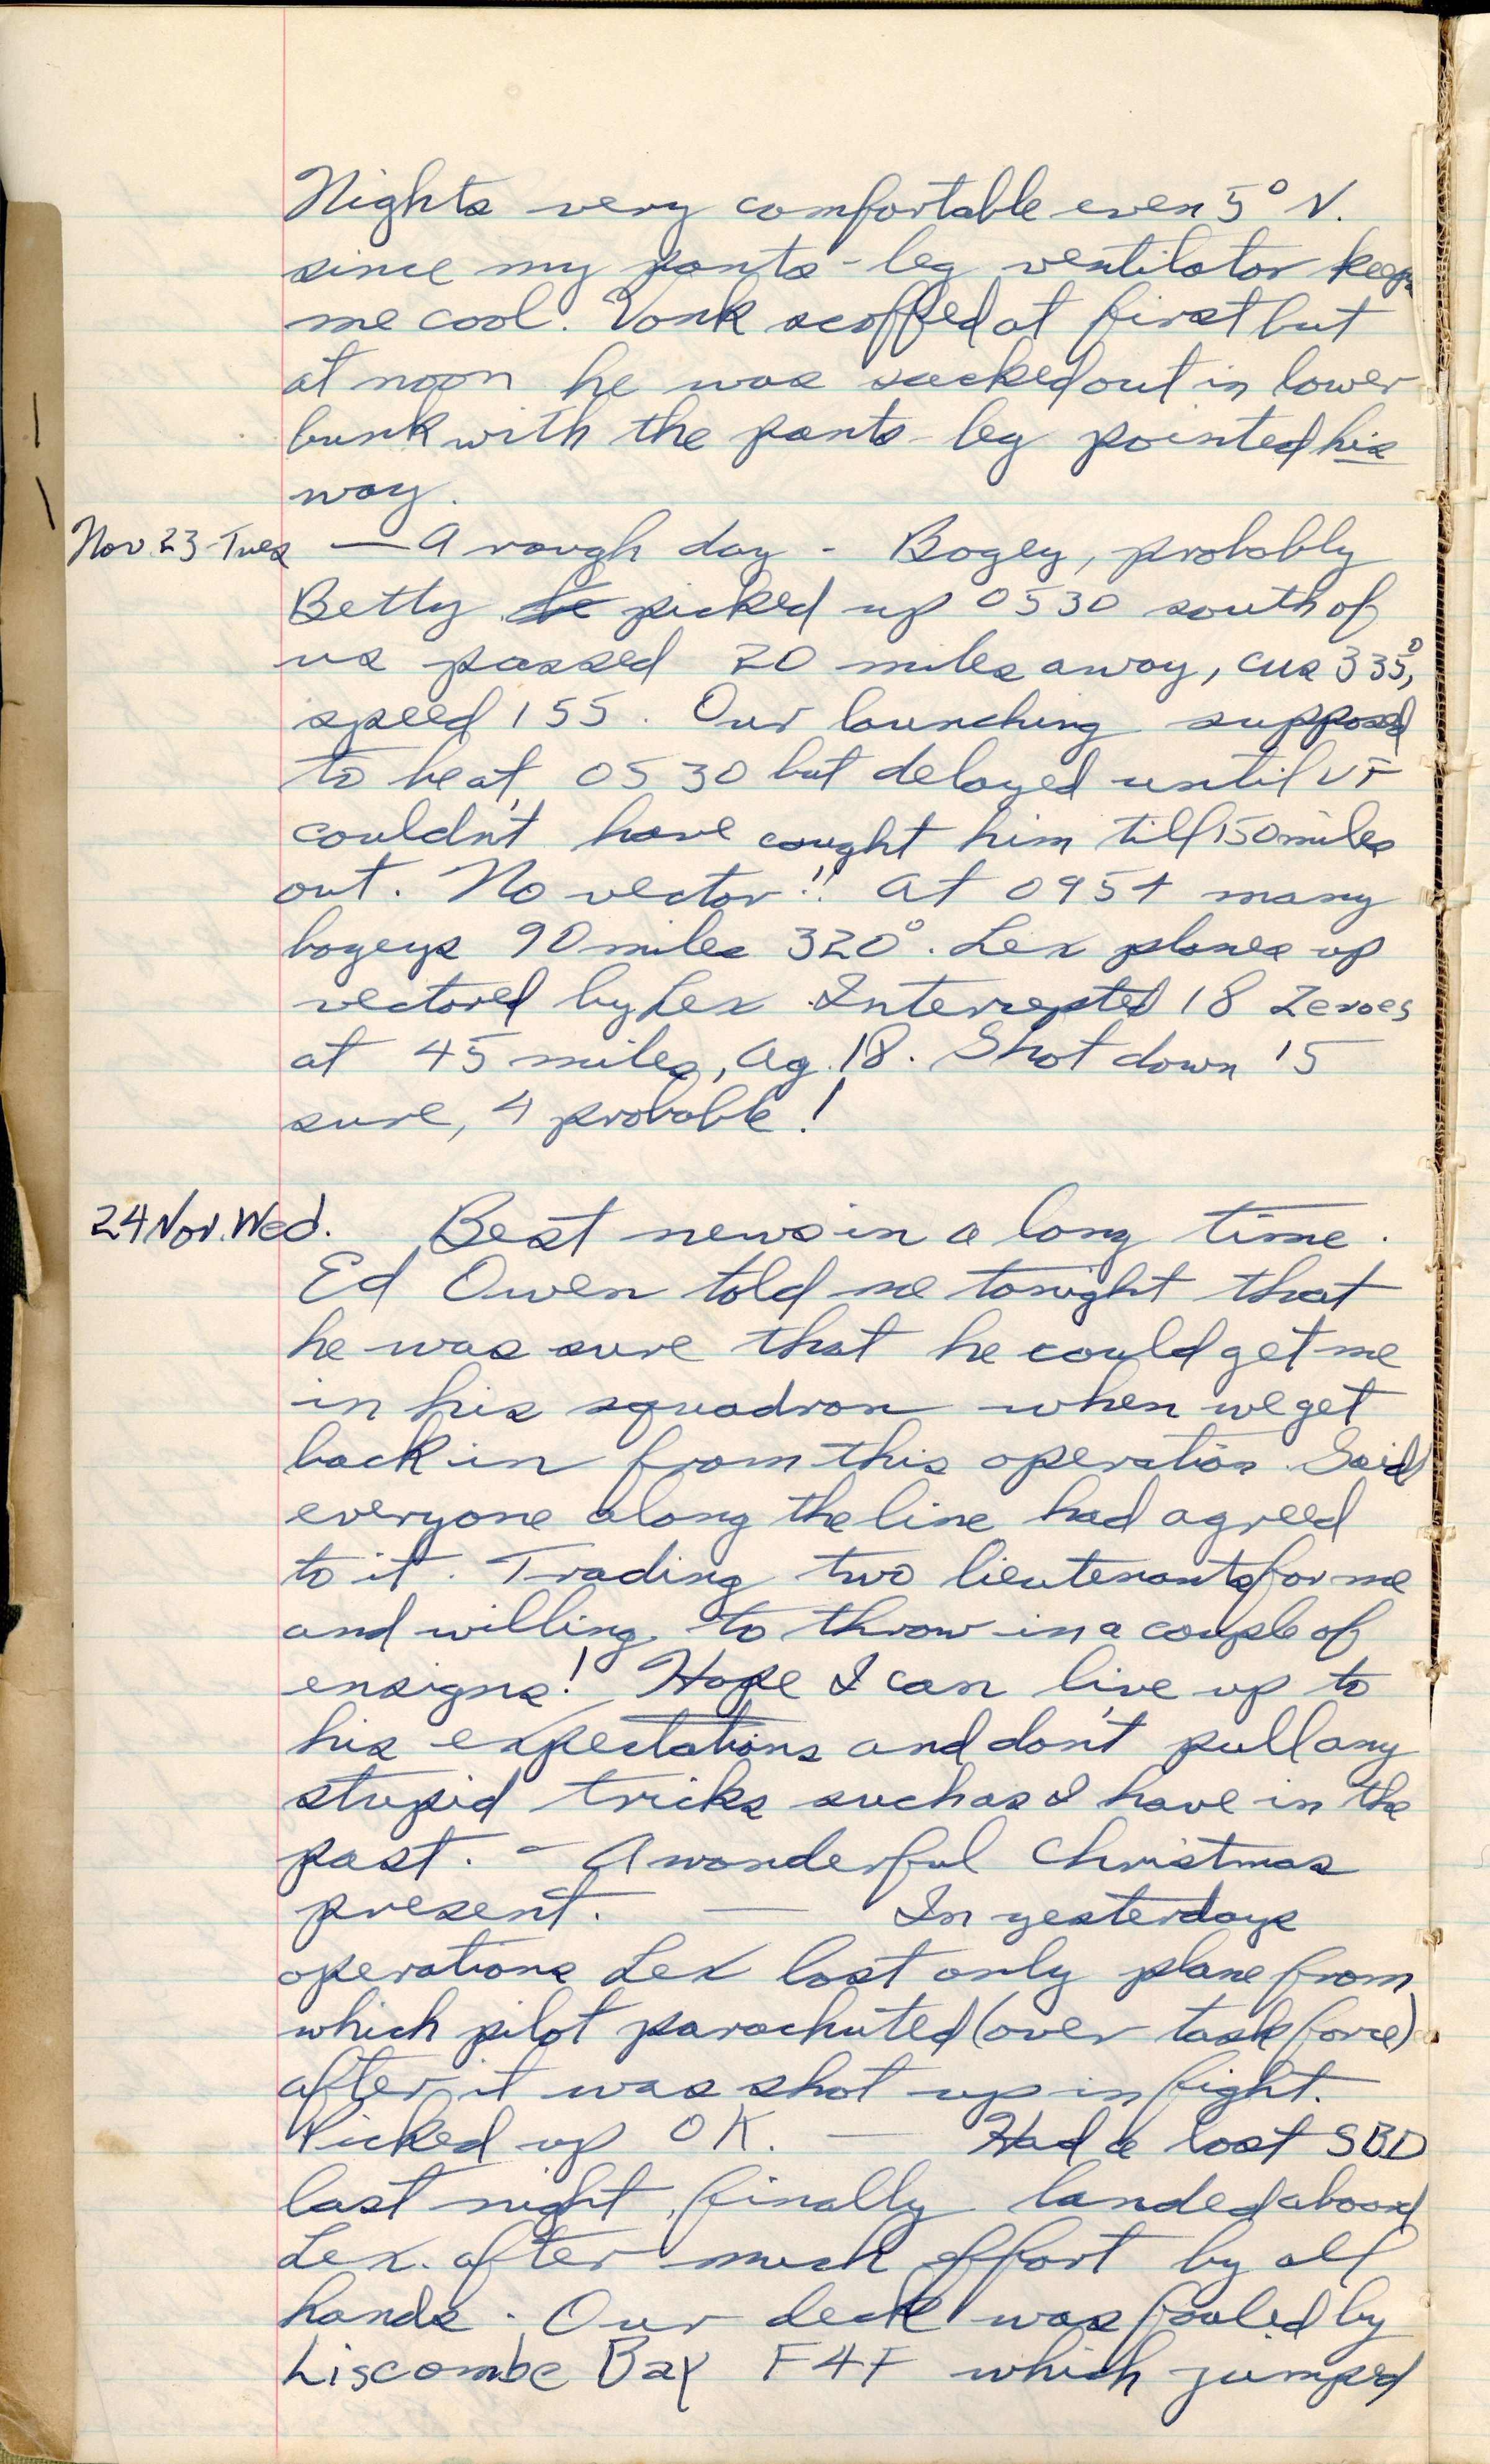 Nights very comfortable even 5° N.
since my pants-leg ventilator keeps
me cool. Vonk scoffed at first but
at noon he was sacked out in lower
bunk with the pants-leg pointed his
way.
Nov. 23-Tues — A rough day - Bogey, probably
Betty picked up 0530 south of
us passed 20 miles away, cus 335°,
speed 155. Our launching supposed
to be at 0530 but delayed until VF
couldn't have caught him till 150 miles
out. No vector!! At 0954 many
bogeys 90 miles 320°. Lex planes up
vectored by Lex. Intercepted 18 Zeroes
at 45 miles, Ag. 18. Shot down 15
sure, 4 probable!
24 Nov. Wed. Best news in a long time.
Ed Owen told me tonight that
he was sure that he could get me
in his squadron when we get
back in from this operation. Said
everyone along the line had agreed
to it. Trading two lieutenants for me
and willing to throw in a couple of
ensigns! Hope I can live up to
his expectations and don't pull any
stupid tricks such as I have in the
past. - A wonderful Christmas
present. — In yesterdays
operations Lex lost only plane from
which pilot parachuted (over task force)
after it was shot up in fight.
Picked up OK. — Had a lost SBD
last night, finally landed aboard
Lex. after much effort by all
hands. Our deck was fouled by
Liscombe Bay F4F which jumped